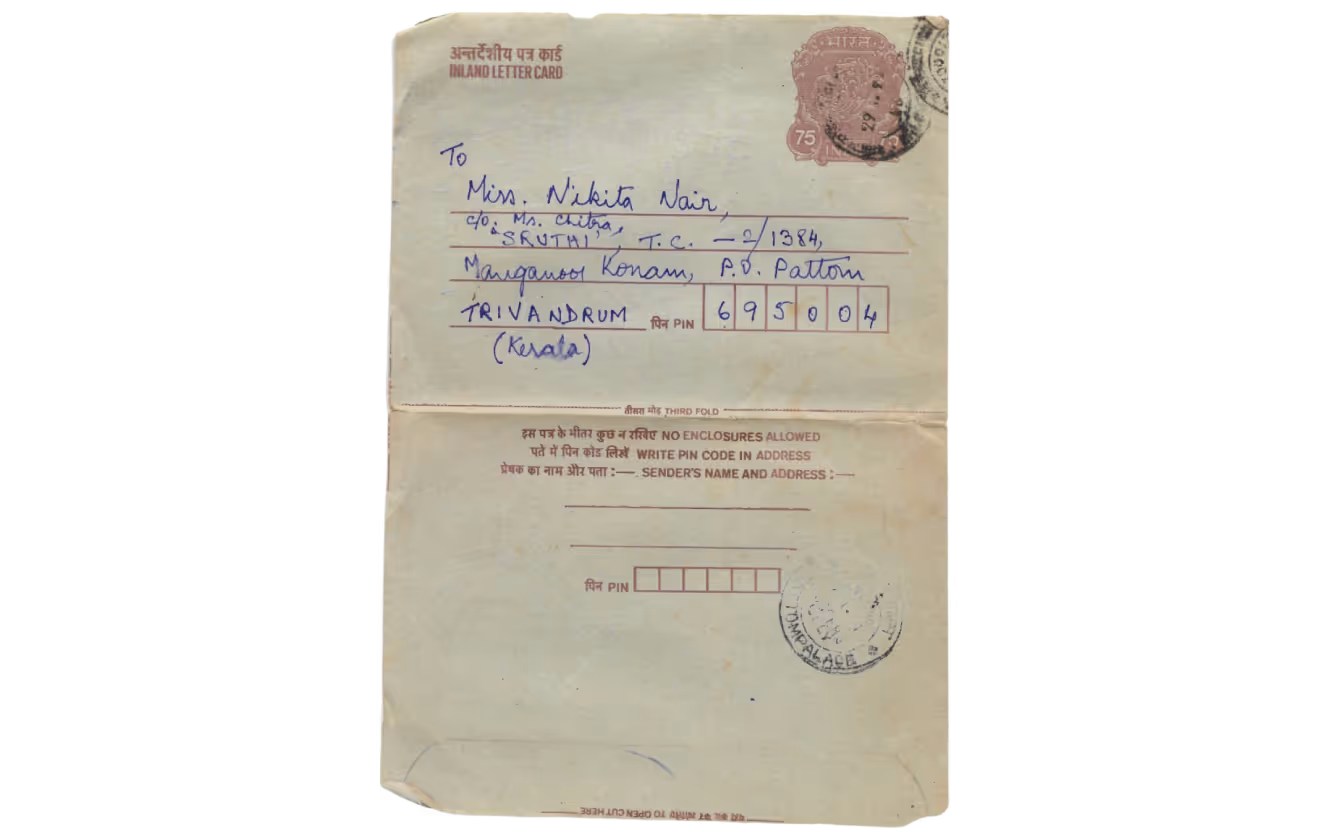 अन्तर्देशीय पत्र कार्ड
INLAND LETTER CARD
भारत
75
INDIA
29
To
Miss. Nikita Nair,
c/o. Ms. Chitra,
"SRUTHI", T.C. - 2/1384,
Konam, P.O. Pattom
TRIVANDRUM पिन PIN 695004
(Kerala)
तीसरा मोड़ THIRD FOLD
इस पत्र के भीतर कुछ न रखिए NO ENCLOSURES ALLOWED
पते में पिन कोड लिखें WRITE PIN CODE IN ADDRESS
प्रेषक का नाम और पता :—. SENDER'S NAME AND ADDRESS :—
पिन PIN
TOMPALACE
TO OPEN CUT HERE